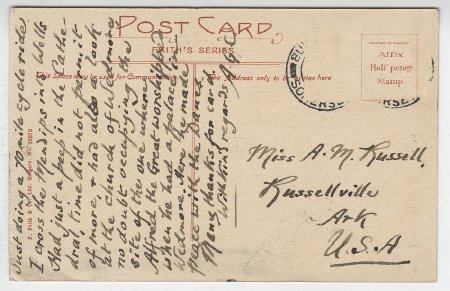 POST CARD
FRITH'S SERIES
This Space may be used for Communication
The Address only to be written here
Affix
Half penny
Stamp
F. Frith & Co. Ltd. Reigate
Just doing a 70 mile cycle ride
across the Mendips in a Wells
Had just a peep in the Cathe-
dral, time did not permit
of more, & had also a look
at the church of Wedmore
no doubt occupying the
site of the one where
Alfred the Great worshipped
when he had a palace in
Wedmore. Here he made
peace with the Danes.
Many thanks for card
With kind regards
Miss A. M. Russell,
Russellville
Ark
U.S.A